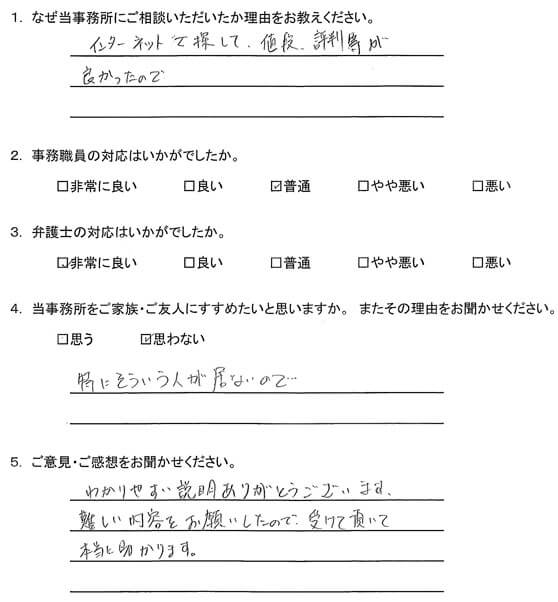 1. なぜ当事務所にご相談いただいたか理由をお教えください。
インターネットで探して、値段、評判等が
良かったので
2. 事務職員の対応はいかがでしたか。
□非常に良い □良い ☑普通 □やや悪い □悪い
3. 弁護士の対応はいかがでしたか。
☑非常に良い □良い □普通 □やや悪い □悪い
4. 当事務所をご家族・ご友人にすすめたいと思いますか。 またその理由をお聞かせください。
□思う ☑思わない
特にそういう人が居ないので…
5. ご意見・ご感想をお聞かせください。
わかりやすい説明ありがとうございます、
難しい内容をお願いしたので、受けて頂いて
本当に助かります。